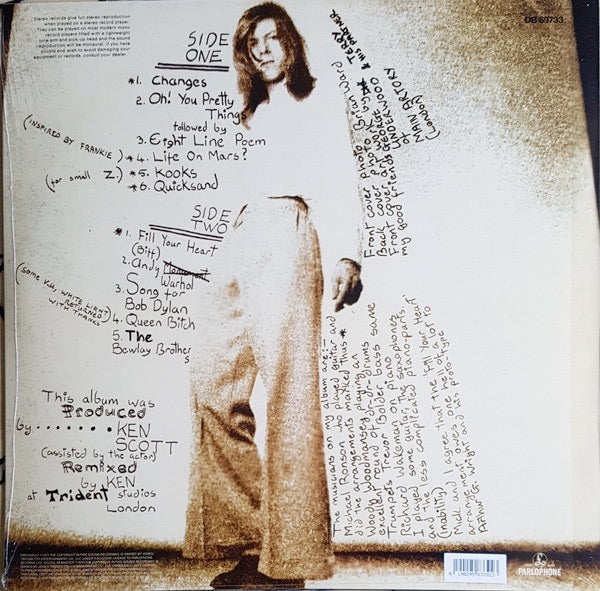 Stereo records give full stereo reproduction
when played on a stereo record player.
They can be played on most modern mono
record players fitted with a lightweight
tone arm and pick-up head and the sound
reproduction will be monaural. If you have
doubts and wish to avoid damaging your
equipment or records, consult your dealer.
DB 69733
SIDE
ONE
*1. Changes
2. Oh! You Pretty
Things
followed by
3. Eight Line Poem
(INSPIRED BY FRANKIE) *4. Life On Mars?
(for small Z) *5. Kooks
*6. Quicksand
SIDE
TWO
*1. Fill Your Heart
(Biff)
2. Andy
Warhol
3. Song for
Bob Dylan
(SOME V.U. WHITE LIGHT
RETURNED
WITH THANKS)
4. Queen Bitch
5. The
Bewlay Brothers
This album was
Produced
by ........ KEN
SCOTT
(assisted by the actor)
Remixed
by KEN
at Trident studios
London
Front cover photo Brian Ward
Back cover photo work by
Front cover art GEORGE UNDERWOOD
my good friends
TERRY
& HIS PARTNER
of
MAIN ARTORY
(LONDON)
The musicians on my album are:—
Michael Ronson who played guitar and
did the arrangements marked thus *
Woody Woodmansey playing an
excellent sound of dr-dr-drums
Trumpets Trevor Bolder bass same
Richard Wakeman on piano
I played some guitar, the saxophones
and the less complicated piano-parts
(inability)
Mick and I agree that the 'Fill Your Heart'
arrangement owes one helluva lot to
Arthur G. Wright and his prototype
PARLOPHONE